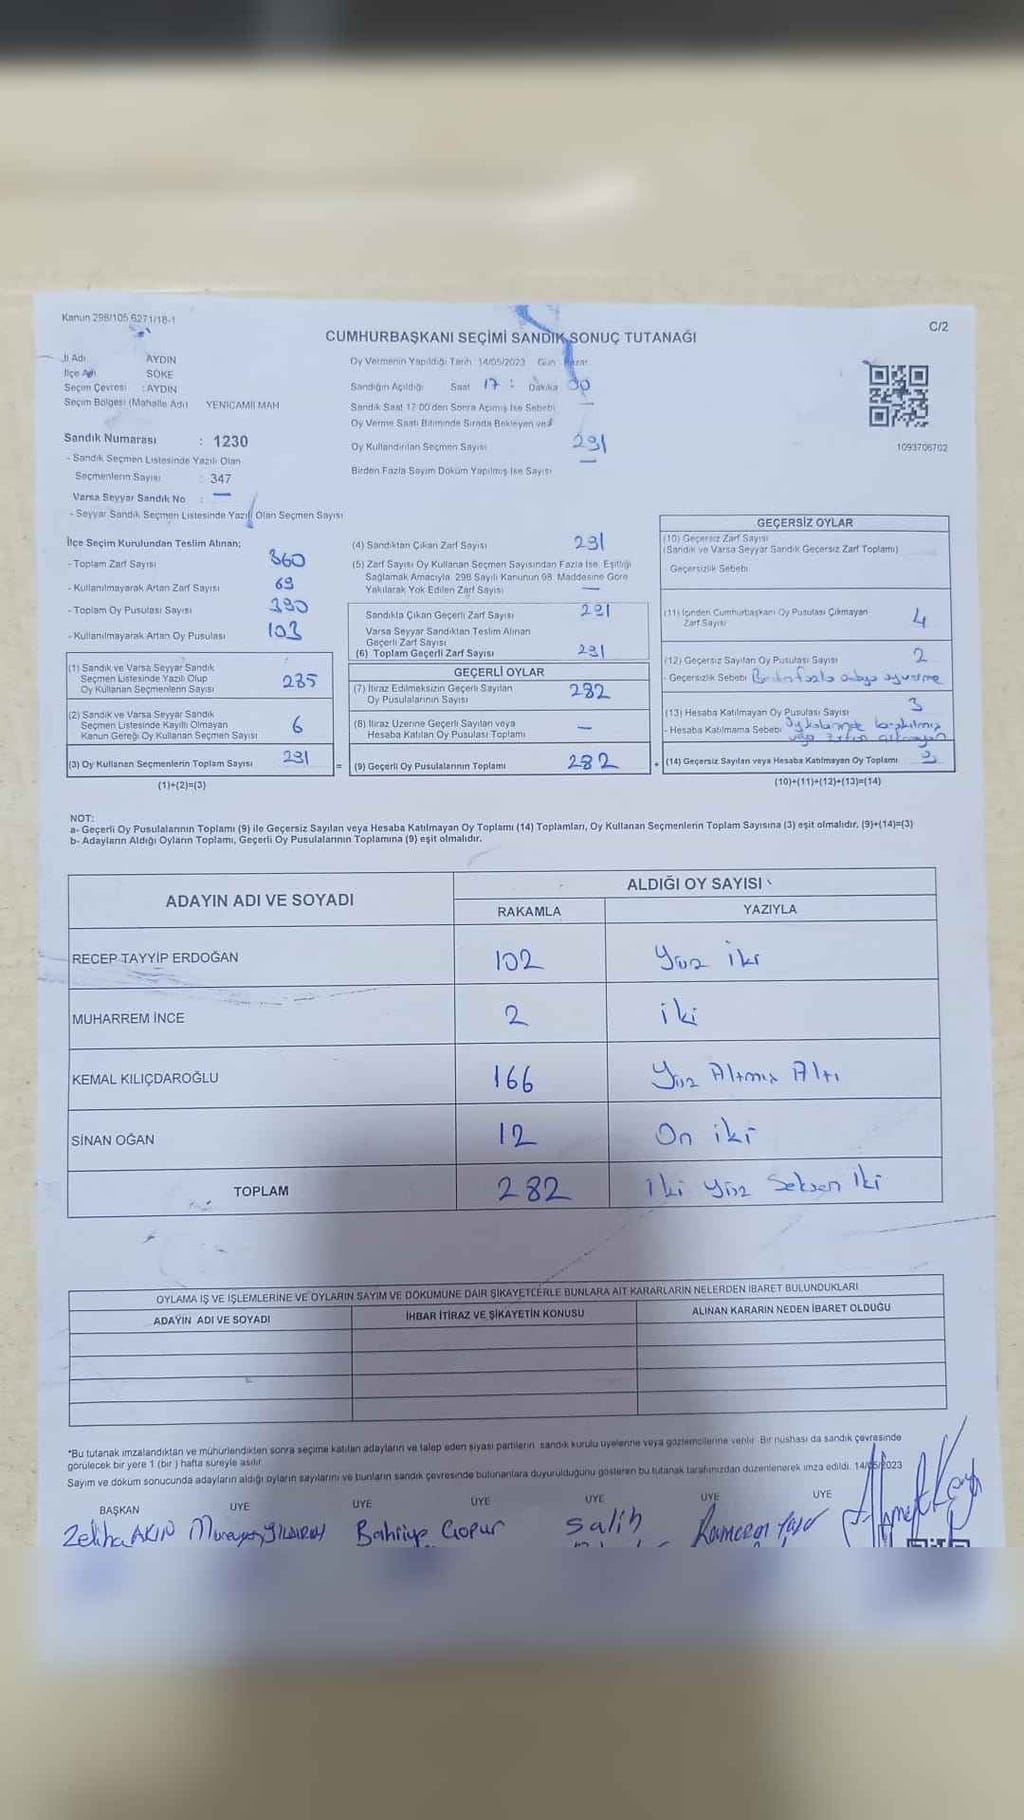 Kanun 298/105 6271/18-1
C/2
CUMHURBAŞKANI SEÇİMİ SANDIK SONUÇ TUTANAĞI
İl Adı AYDIN
İlçe Adı SÖKE
Seçim Çevresi : AYDIN
Seçim Bölgesi (Mahalle Adı) YENİCAMİİ MAH
Sandık Numarası : 1230
- Sandık Seçmen Listesinde Yazılı Olan
Seçmenlerin Sayısı : 347
Varsa Seyyar Sandık No : —
- Seyyar Sandık Seçmen Listesinde Yazılı Olan Seçmen Sayısı
Oy Vermenin Yapıldığı Tarih 14/05/2023 Gün Pazar
Sandığın Açıldığı Saat 17 : Dakika 00
Sandık Saat 17.00'den Sonra Açılmış İse Sebebi —
Oy Verme Saati Bitiminde Sırada Bekleyen ve
Oy Kullandırılan Seçmen Sayısı 291
Birden Fazla Sayım Döküm Yapılmış İse Sayısı —
1093706702
İlçe Seçim Kurulundan Teslim Alınan;
- Toplam Zarf Sayısı 360
- Kullanılmayarak Artan Zarf Sayısı 69
- Toplam Oy Pusulası Sayısı 390
- Kullanılmayarak Artan Oy Pusulası 103
(1) Sandık ve Varsa Seyyar Sandık
Seçmen Listesinde Yazılı Olup
Oy Kullanan Seçmenlerin Sayısı 285
(2) Sandık ve Varsa Seyyar Sandık
Seçmen Listesinde Kayıtlı Olmayan
Kanun Gereği Oy Kullanan Seçmen Sayısı 6
(3) Oy Kullanan Seçmenlerin Toplam Sayısı 291
(1)+(2)=(3)
(4) Sandıktan Çıkan Zarf Sayısı 291
(5) Zarf Sayısı Oy Kullanan Seçmen Sayısından Fazla İse, Eşitliği
Sağlamak Amacıyla, 298 Sayılı Kanunun 98. Maddesine Göre
Yakılarak Yok Edilen Zarf Sayısı —
Sandıkla Çıkan Geçerli Zarf Sayısı 291
Varsa Seyyar Sandıktan Teslim Alınan
Geçerli Zarf Sayısı
(6) Toplam Geçerli Zarf Sayısı 291
GEÇERLİ OYLAR
(7) İtiraz Edilmeksizin Geçerli Sayılan
Oy Pusulalarının Sayısı 282
(8) İtiraz Üzerine Geçerli Sayılan veya
Hesaba Katılan Oy Pusulası Toplamı —
= (9) Geçerli Oy Pusulalarının Toplamı 282
GEÇERSİZ OYLAR
(10) Geçersiz Zarf Sayısı
(Sandık ve Varsa Seyyar Sandık Geçersiz Zarf Toplamı)
- Geçersizlik Sebebi
(11) İçinden Cumhurbaşkanı Oy Pusulası Çıkmayan
Zarf Sayısı 4
(12) Geçersiz Sayılan Oy Pusulası Sayısı 2
- Geçersizlik Sebebi Birden fazla adaya oy verme
(13) Hesaba Katılmayan Oy Pusulası Sayısı 3
- Hesaba Katılmama Sebebi veya
+ (14) Geçersiz Sayılan veya Hesaba Katılmayan Oy Toplamı 9
(10)+(11)+(12)+(13)=(14)
NOT:
a- Geçerli Oy Pusulalarının Toplamı (9) ile Geçersiz Sayılan veya Hesaba Katılmayan Oy Toplamı (14) Toplamları, Oy Kullanan Seçmenlerin Toplam Sayısına (3) eşit olmalıdır. (9)+(14)=(3)
b- Adayların Aldığı Oyların Toplamı, Geçerli Oy Pusulalarının Toplamına (9) eşit olmalıdır.
ADAYIN ADI VE SOYADI
ALDIĞI OY SAYISI
RAKAMLA YAZIYLA
RECEP TAYYİP ERDOĞAN 102 Yüz İki
MUHARREM İNCE 2 iki
KEMAL KILIÇDAROĞLU 166 Yüz Altmış Altı
SİNAN OĞAN 12 On iki
TOPLAM 282 İki yüz Seksen İki
OYLAMA İŞ VE İŞLEMLERİNE VE OYLARIN SAYIM VE DÖKÜMÜNE DAİR ŞİKAYETÇERLE BUNLARA AİT KARARLARIN NELERDEN İBARET BULUNDUKLARI
ADAYIN ADI VE SOYADI İHBAR İTİRAZ VE ŞİKAYETİN KONUSU ALINAN KARARIN NEDEN İBARET OLDUĞU
*Bu tutanak imzalandıktan ve mühürlendikten sonra seçime katılan adayların ve talep eden siyasi partilerin sandık kurulu üyelerine veya gözlemcilerine verilir. Bir nüshası da sandık çevresinde
görülecek bir yere 1 (bir) hafta süreyle asılır.
Sayım ve döküm sonucunda adayların aldığı oyların sayılarını ve bunların sandık çevresinde bulunanlara duyurulduğunu gösteren bu tutanak tarafımızdan düzenlenerek imza edildi. 14/05/2023
BAŞKAN ÜYE ÜYE ÜYE ÜYE ÜYE ÜYE
Zeliha AKIN YILDIRIM Bahriye Çopur Salih Ramazan Ahmet Kaya